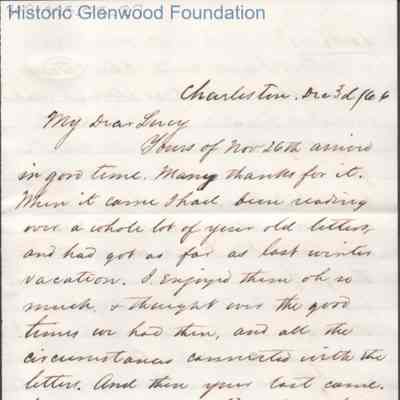 Historic Glenwood Foundation
Charleston. Dec 3d /66
My Dear Lucy
Yours of Nov 26th arrived
in good time. Many thanks for it.
When it came I had been reading
over a whole lot of your old letters,
and had got as far as last winter
vacation. I enjoyed them oh so
much & thought over the good
times we had then, and all the
circumstances connected with the
letters. And then your last came.